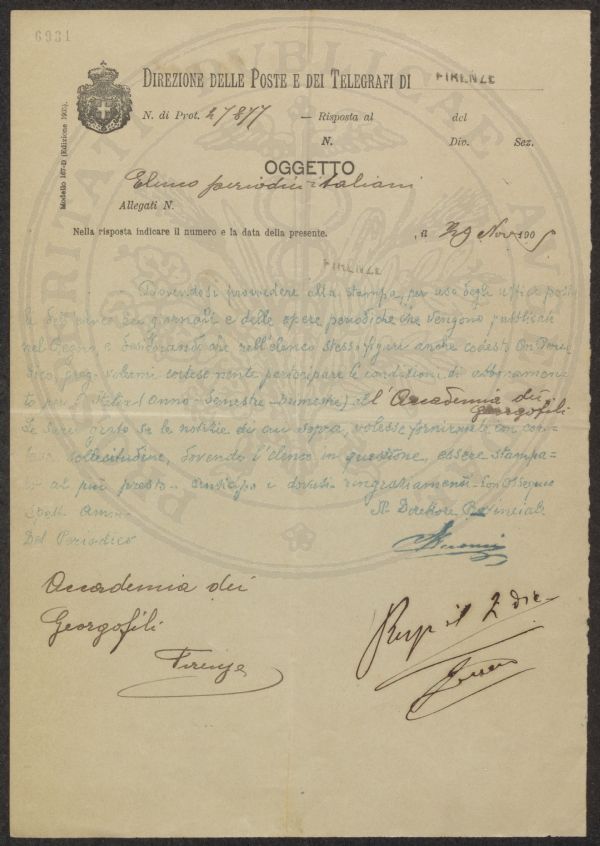 6931
DIREZIONE DELLE POSTE E DEI TELEGRAFI DI FIRENZE
N. di Prot. 27877 — Risposta al del
N. Div. Sez.
OGGETTO
Elenco periodici italiani
Allegati N.
Modello 167-D (Edizione 1903).
Nella risposta indicare il numero e la data della presente.
, a 29 Nov 1905
FIRENZE
Dovendosi provvedere alla stampa, per uso degli uffici posta
li dell'elenco dei giornali e delle opere periodiche che vengono pubblicati
nel Regno, e desiderando che nell'elenco stesso figuri anche codesto On. Perio
dico, pregola volermi cortesemente partecipare le condizioni di abbonamen
to per l'Italia (Anno - Semestre - ) all'Accademia dei
Georgofili
Le sarei grato se le notizie di cui sopra, volesse fornirmele con cor
tese sollecitudine, dovendo l'elenco in questione, essere stampa-
to al più presto. e dovuti ringraziamenti. Con Ossequio
Spett. Amm. Il Direttore Provinciale
Del Periodico
Accademia dei
Georgofili
Firenze
Risp il 2 dic